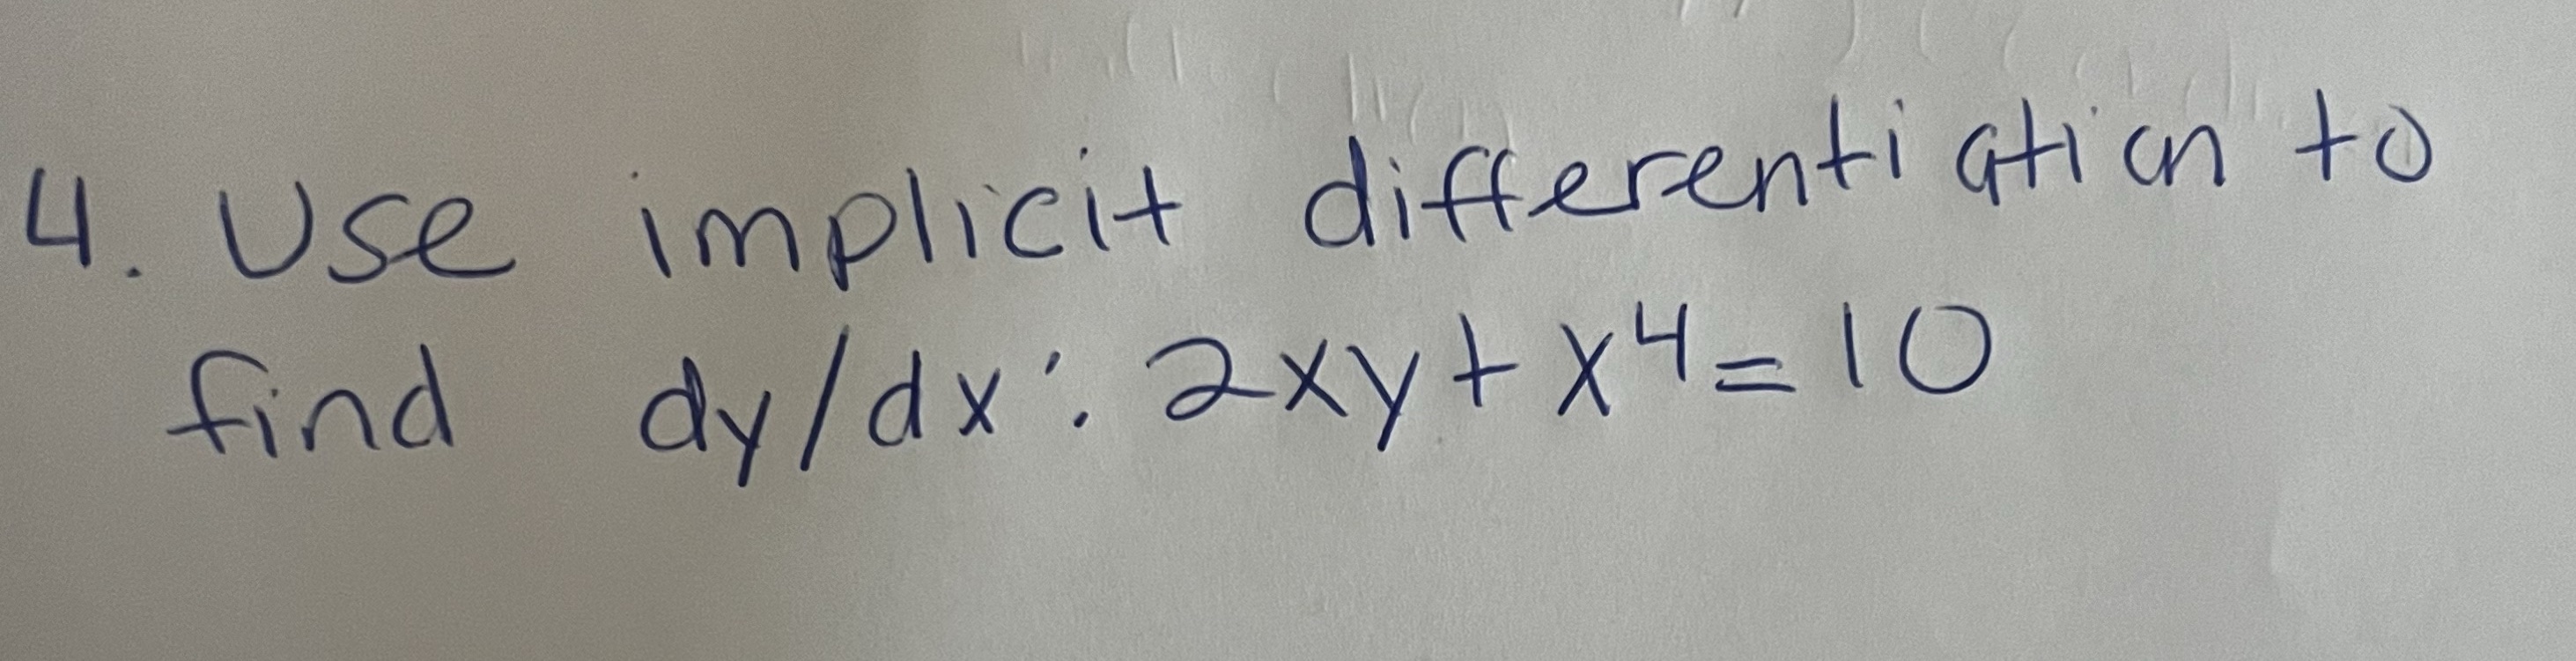 4. Use implicit differentiation to
find dy/dx: 2xy + x⁴ = 10